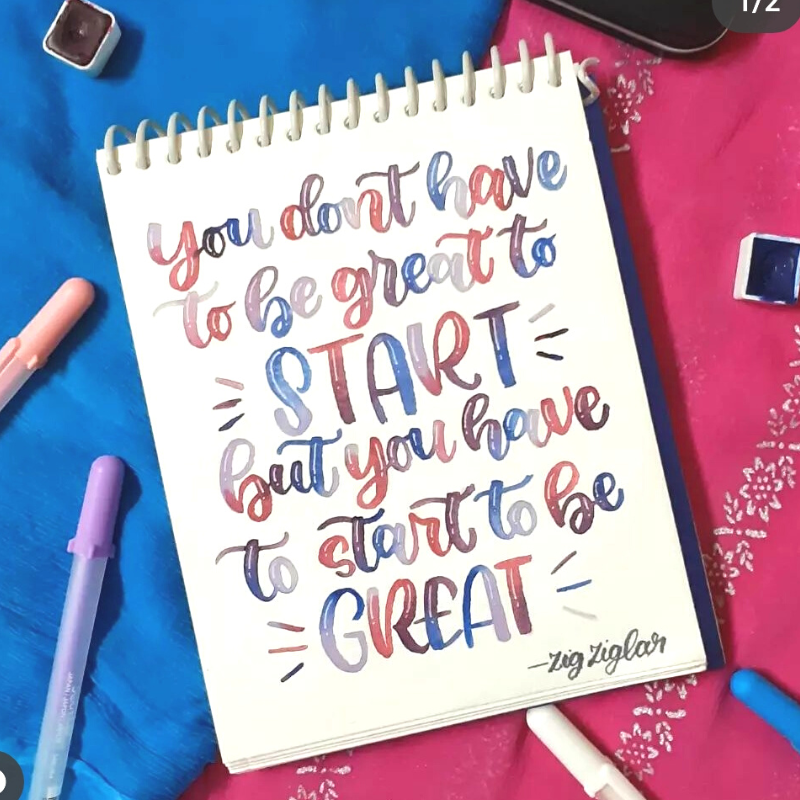 1/2
you don't have
to be great to
START
but you have
to start to be
GREAT
-zig ziglar